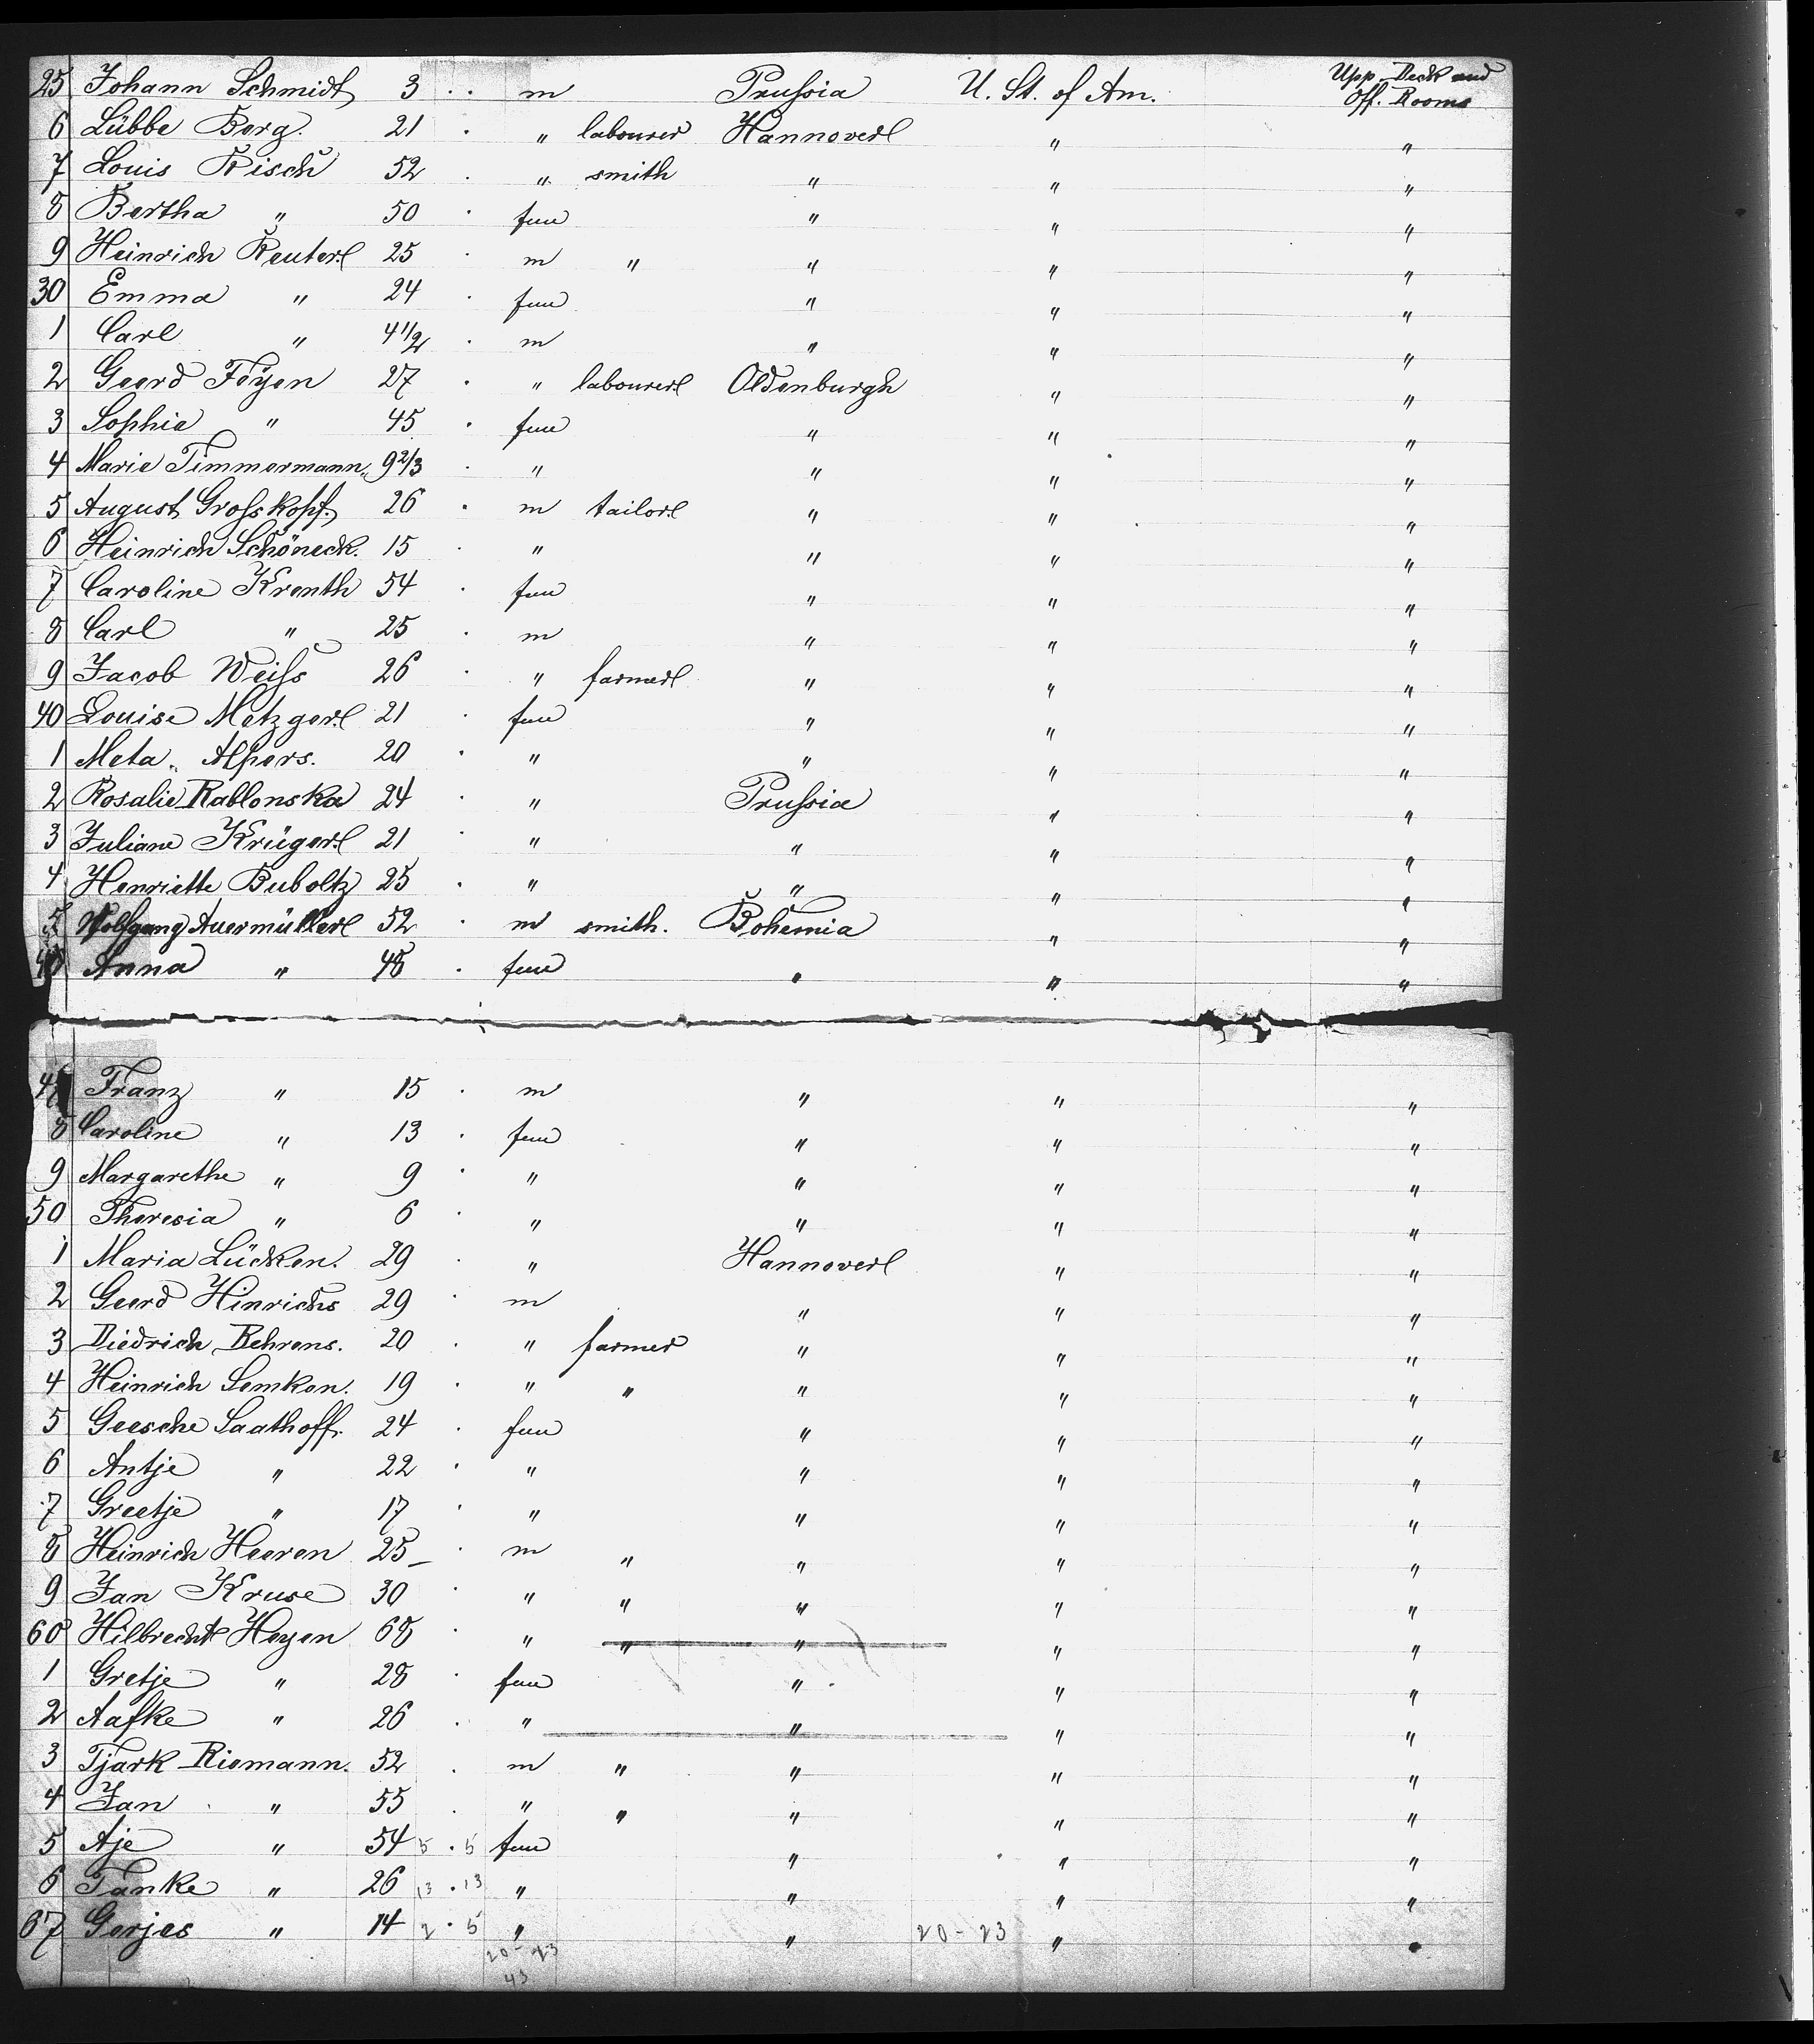 25 Johann Schmidt 3 m Prussia U. St. of Am. Upp. Deck and Off. Rooms
6 Lübbe Berg. 21 " labourer Hannover " "
7 Louis Risch 52 " smith " " "
8 Bertha " 50 fem " " "
9 Heinrich Reuter 25 m " " " "
30 Emma " 24 fem " " "
1 Carl " 4 1/2 m " " "
2 Geerd Foÿen 27 " labourer Oldenburgh " "
3 Sophie " 45 fem " " "
4 Marie Timmermann 9 2/3 " " " "
5 August Grosskopf. 26 m tailor " " "
6 Heinrich Schöneck. 15 " " " "
7 Caroline Krenth 54 fem " " "
8 Carl " 25 m " " "
9 Jacob Weiss 26 " farmer " " "
40 Louise Metzger 21 fem " " "
1 Meta Alpers. 20 " " " "
2 Rosalie Rablonska 24 " Prussia " "
3 Juliane Krüger 21 " " " "
4 Henriette Buboltz 25 " " " "
5 Wolfgang Auermüller 52 m smith. Bohemia " "
46 Anna " 48 fem " " "
47 Franz " 15 m " " "
8 Caroline " 13 fem " " "
9 Margarethe " 9 " " " "
50 Theresia " 6 " " " "
1 Maria Lücken. 29 " Hannover " "
2 Geerd Hinrichs 29 m " " "
3 Diedrich Behrens. 20 " farmer " " "
4 Heinrich Lemken. 19 " " " " "
5 Geesche Saathoff. 24 fem " " "
6 Antje " 22 " " " "
7 Greetje " 17 " " " "
8 Heinrich Heeren 25 m " " " "
9 Jan Kruse 30 " " " " "
60 Hilbrecht Heyen 68 " " " " "
1 Gretje " 28 fem " " "
2 Aafke " 26 " " " "
3 Tjark Riemann. 52 m " " " "
4 Jan " 55 " " " " "
5 Aje " 54 5 5 fem " " "
6 Tanke " 26 13 13 " " " "
67 Gerjes " 14 2 5 " " 20-23 " "
20-23
43